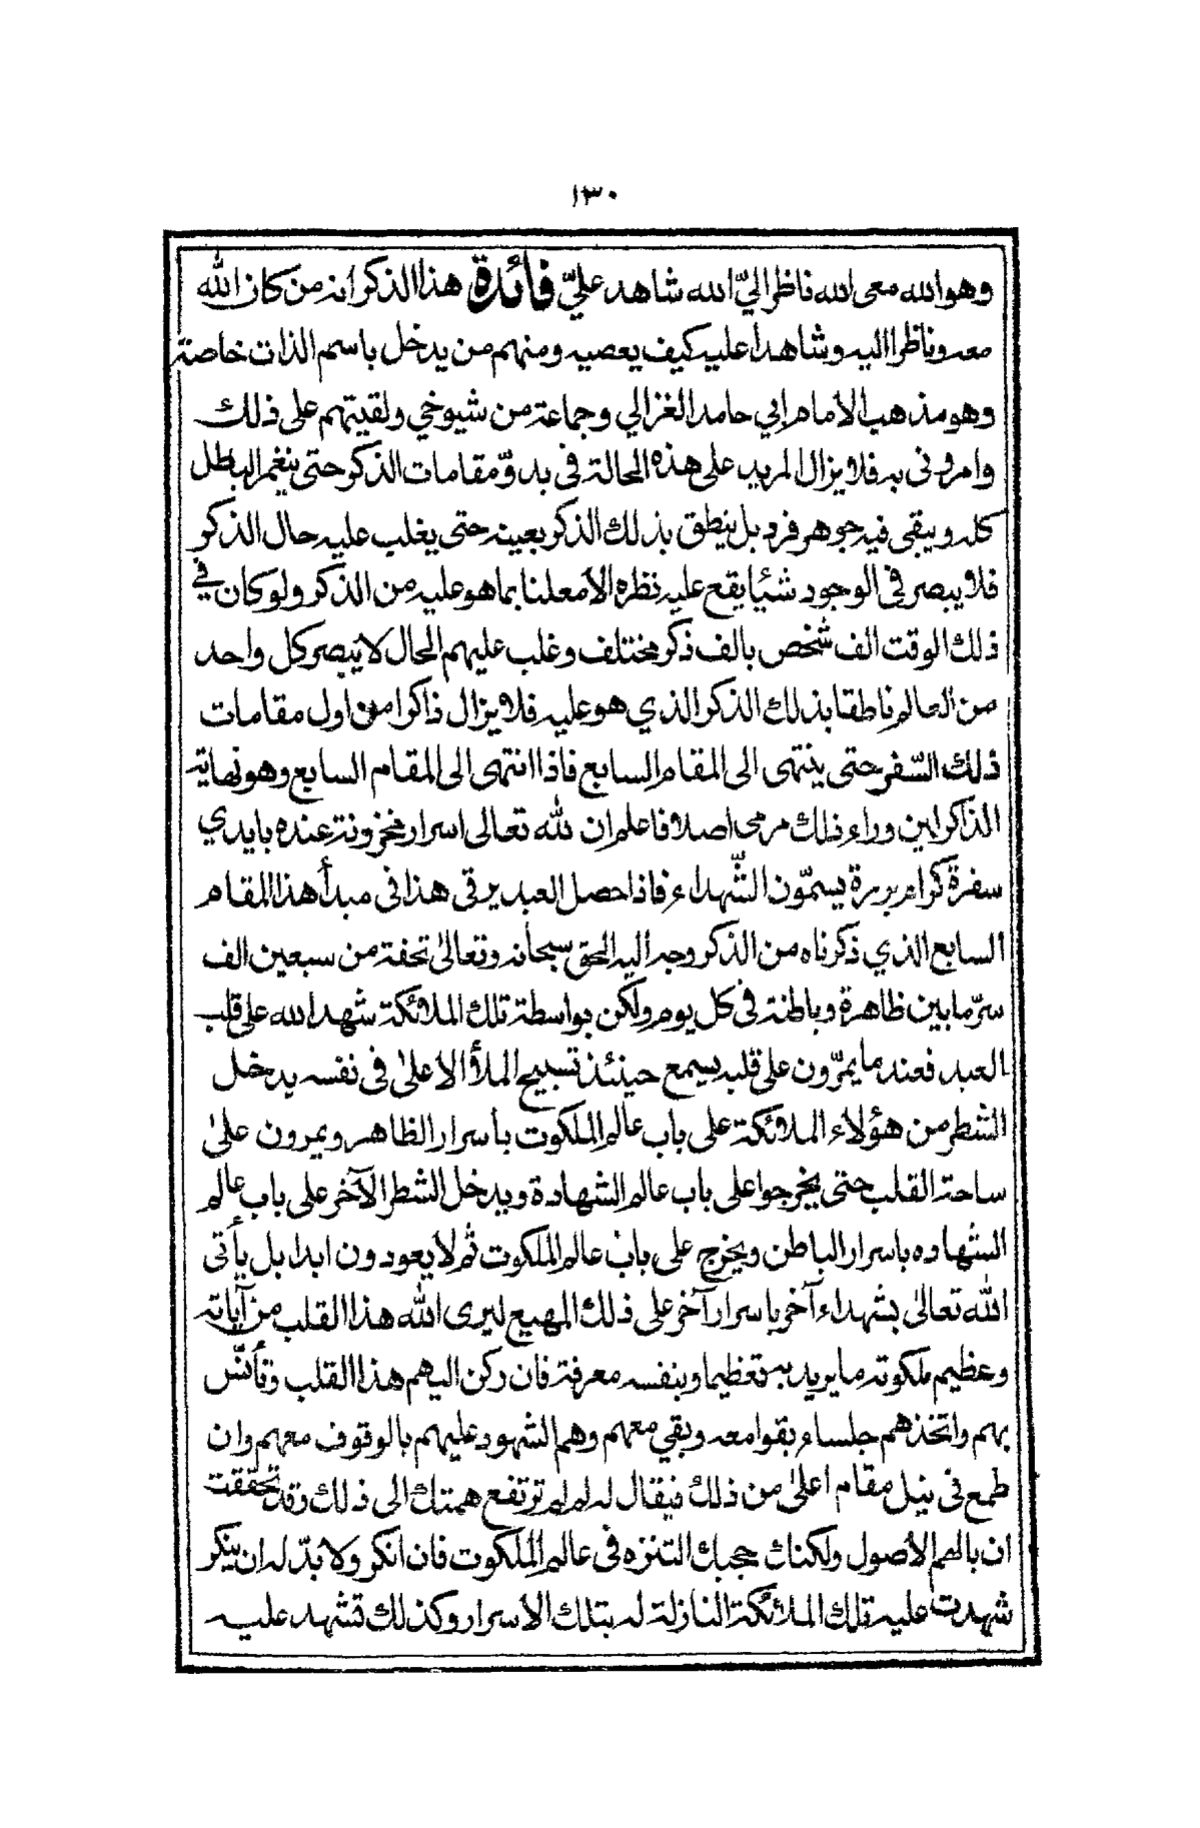 ١٣٠
وهو الله معى الله ناظر اليّ الله شاهد عليّ فائدة هذا الذكر انه من كان الله
معه وناظرا اليه وشاهدا عليه كيف يعصيه ومنهم من يدخل باسم الذات خاصة
وهو مذهب الأمام ابي حامد الغزالي وجماعة من شيوخي ولقيتهم على ذلك
وامرونى به فلا يزال المريد على هذه الحالة فى بدوّ مقامات الذكر حتى ينغمر الباطل
كله ويبقى فيه جوهر فرد بل ينطق بذلك الذكر بعينه حتى يغلب عليه حال الذكر
فلا يبصر في الوجود شئا يقع عليه نظره الا معلنا بما هو عليه من الذكر ولو كان في
ذلك الوقت الف شخص بالف ذكر مختلف وغلب عليهم الحال لا يبصر كل واحد
من العالم ناطقا بذلك الذكر الذي هو عليه فلا يزال ذاكرا من اول مقامات
ذلك السّفر حتى ينتهى الى المقام السابع فاذا انتهى الى المقام السابع وهو نهاية
الذاكرين وراء ذلك مرمى اصلا فاعلم ان لله تعالى اسرار مخزونة عنده بايدي
سفرة كرام بررة يسمّون الشّهداء فاذا حصل العبد يرقى هذا فى مبدأ هذا المقام
السابع الذي ذكرناه من الذكر وجه اليه الحق سبحانه وتعالىٰ تحفة من سبعين الف
سرّ ما بين ظاهرة وباطنة فى كل يوم ولكن بواسطة تلك الملائكة شهد الله على قلب
العبد فعند ما يمرّون على قلبه يسمع حينئذ تسبيح الملأ الاعلىٰ فى نفسه يدخل
الشطر من هؤلاء الملائكة على باب عالم الملكوت بأسرار الظاهر ويمرون علىٰ
ساحة القلب حتى يخرجوا على باب عالم الشهادة ويدخل الشطر الآخر على باب عالم
الشهاده باسرار الباطن ويخرج على باب عالم الملكوت ثم لا يعودون ابدا بل يأتى
الله تعالىٰ بشهداء آخر باسرار آخر على ذلك المهيع ليرى الله هذا القلب من آياته
وعظيم ملكوته ما يريد به تعظيما وبنفسه معرفة فان ركن اليهم هذا القلب وتأنّس
بهم واتخذهم جلساء بقوا معه وبقي معهم وهم الشهود عليهم بالوقوف معهم وان
طمع فى نيل مقام اعلىٰ من ذلك فيقال له لم لم ترتفع همتك الى ذلك وقد تحققت
ان بالهم الأصول ولكنك حجبك التنزه فى عالم الملكوت فان انكر ولا بدّ له ان ينكر
شهدت عليه تلك الملائكة النازلة له بتلك الاسرار وكذلك تشهد عليه